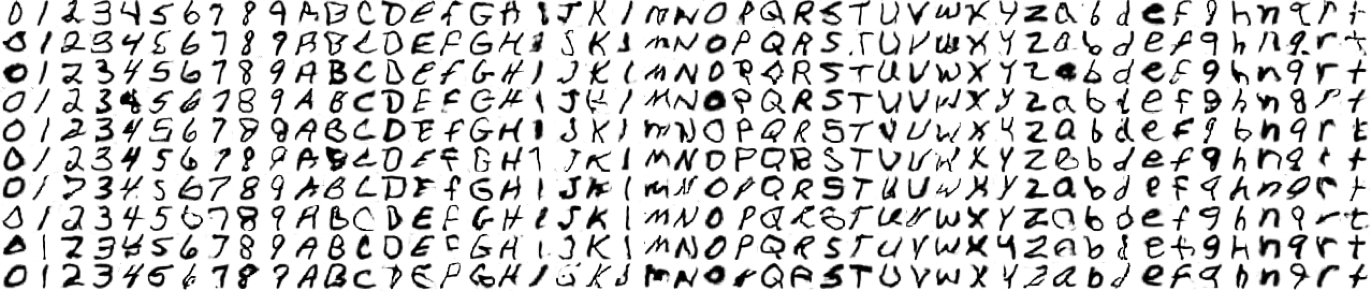 0 1 2 3 4 5 6 7 8 9 A B C D E f G H I J K l m N O P Q R S T U V w X Y Z a b d e f g h n q r t
0 1 2 3 4 5 6 7 8 9 A B C D E f G H I J K l m N O P Q R S T U V w X Y Z a b d e f g h n q r t
0 1 2 3 4 5 6 7 8 9 A B C D E f G H I J K l m N O P Q R S T U V W X Y Z a b d e f g h n q r t
0 1 2 3 4 5 6 7 8 9 A B C D E F G H I J K l M N O P Q R S T U V W X Y Z a b d e f g h n q r t
0 1 2 3 4 5 6 7 8 9 A B C D E f G H I J K l m N O P Q R S T U V W X Y Z a b d e f g h n q r t
0 1 2 3 4 5 6 7 8 9 A B C D E F G H I J K l M N O P Q R S T U V W X Y Z a b d e f g h n q r t
0 1 2 3 4 5 6 7 8 9 A B C D E f G H I J K l m N O P Q R S T U V W X Y Z a b d e f g h n q r t
0 1 2 3 4 5 6 7 8 9 A B C D E f G H I J K l m N O P Q R S T U V W X Y Z a b d e f g h n q r t
0 1 2 3 4 5 6 7 8 9 A B C D E F G H I J K l M N O P Q R S T U V W X Y Z a b d e f g h n q r t
0 1 2 3 4 5 6 7 8 9 A B C D E F G H I J K l m N O P Q R S T U V W X Y Z a b d e f g h n q r t